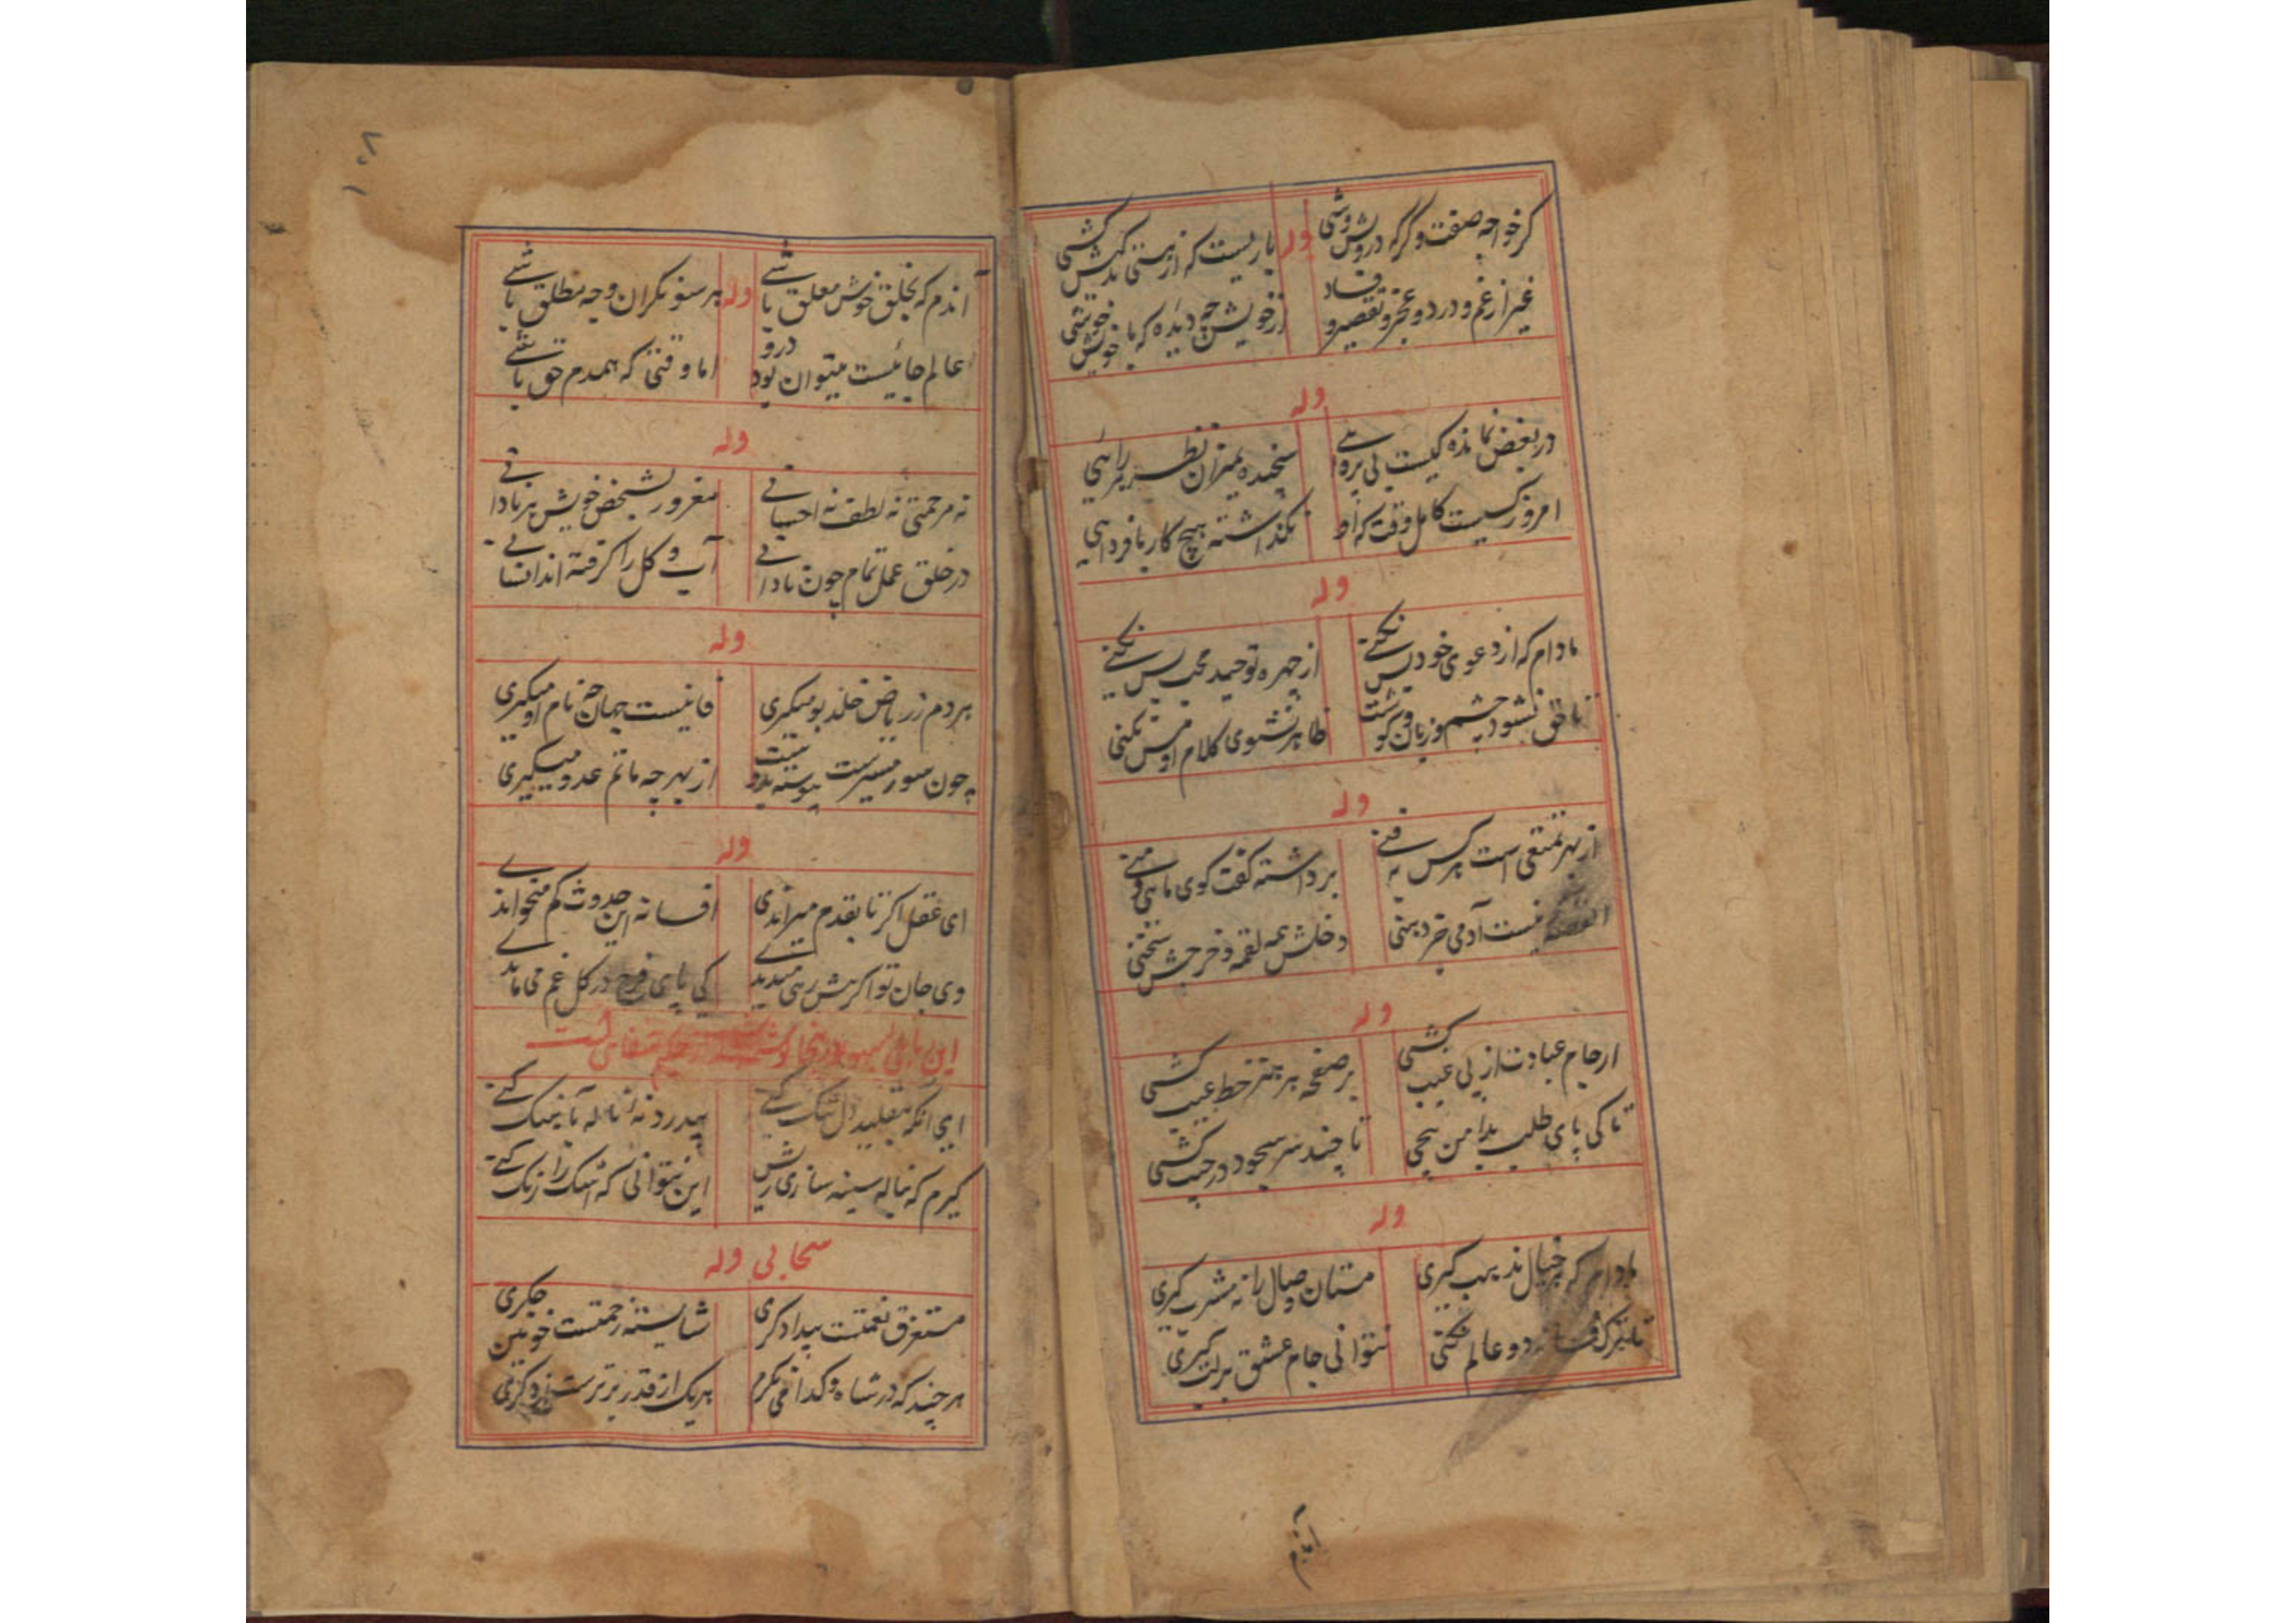 گر خواجه صفت و گر که درویش وشی
وله
باریست که از هستی خود میکشی
غیر از غم و درد و عجز و تقصیر و فساد
از خویش چه دیده که با خویش خوشی
وله
در بعض نمانده کیست بی پروائی
سنجیده بمیزان نظر هر رائی
امروز کسیست کامل وقت که او
نگذاشته هیچ کار با فردائی
وله
مادام که از دعوی خود بس نکنی
از چهره توحید مجسس نکنی
تا حق نشود چشم و زبان و گوشت
ظاهر نشنوی کلام او مس نکنی
وله
از بهر تمتعی است هر کس به فنی
برداشته گفت کوی مائی و منی
نیست آدمی جز دهنی
دخلش همه لقمه و خرجش سخنی
وله
از جام عبادت از پی غیب کشی
بر صفحه هر هنر خط عیب کشی
تا کی پای طلب بدامن پیچی
تا چند سر سجود در جیب کشی
وله
مادام که خیال مذهب گیری
مستان وصال را نه مشرب گیری
تا ترک دو عالم نکنی
نتوانی جام عشق بر لب گیری
آندم
۱۰۸
آندم که بخلق خوش معلق باشی
وله
هر سو نگران وجه مطلق باشی
عالم جائیست میتوان بود درو
اما وقتی که همدم حق باشی
وله
نه مرحمتی نه لطف نه احسانی
مغرور بشخص خویش هر نادانی
در خلق عمل تمام چون نادانی
آب و گل را گرفته اند انسانی
وله
هر دم ز ریاض خلد بو میگیری
فانیست جهان چه نام او میگیری
چون سور میسرست پیوسته بدوست
از بهر چه ماتم عدو میگیری
وله
ای عقل اگر تا بقدم میراندی
افسانه این حدوث کم میخواندی
وی جان تو اگر پیش رهی میدیدی
کی پای فرح در گل غم می ماندی
این رباعی سهو در اینجا نوشته شد از حکیم شفائی است
ای آنکه بتقلید دل تنگ کنی
بیدرد نه ناله بآهنگ کنی
گیرم که بناله سینه سازی ریش
این نتوانی که اشک را رنگ کنی
سحابی وله
مستغرق نعمتست بیدادگری
شایسته زحمتست خونین جگری
هر چند که در شاه و گدا می نگرم
هر یک از قدر برترست از دگری